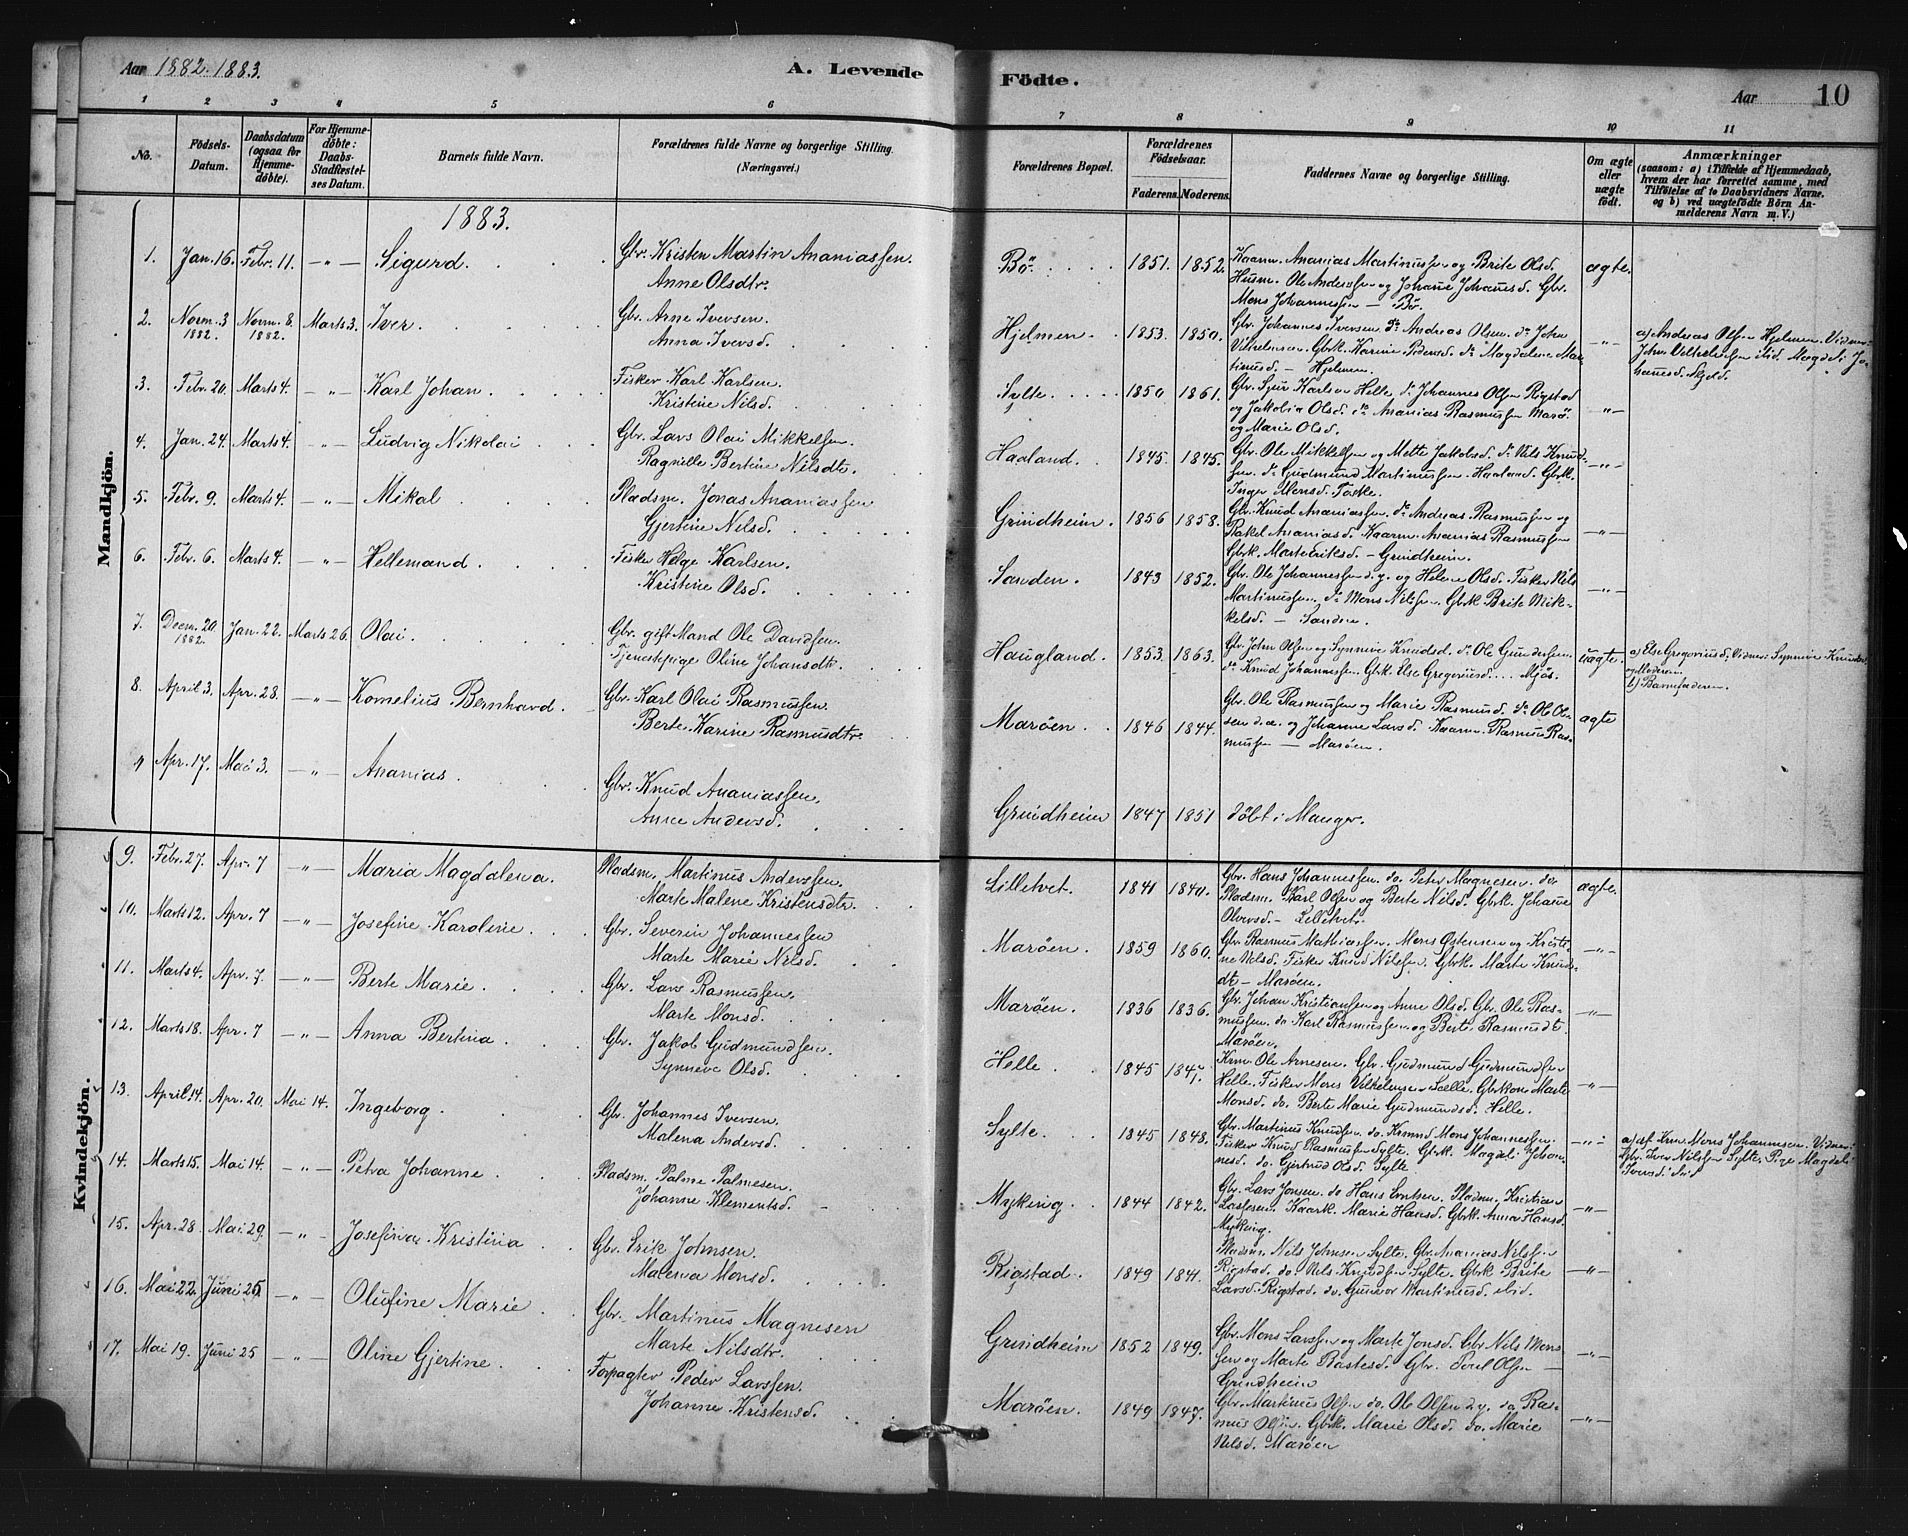 Aar 1882-1883.
A. Levende
Fødte.
Aar
10
1 2 3 4 5 6 7 8 9 10 11
No.
Fødsels-
Datum.
Daabsdatum
(ogsaa for
Hjemme-
døbte).
For Hjemme-
døbte:
Daabs-
Stadfæstel-
ses Datum.
Barnets fulde Navn.
Forældrenes fulde Navne og borgerlige Stilling.
(Næringsvei.)
Forældrenes Bopæl.
Forældrenes
Fødselsaar.
Faderens. Moderens.
Faddernes Navne og borgerlige Stilling.
Om ægte
eller
uægte
født.
Anmærkninger
(saasom: a) i Tilfælde af Hjemmedaab,
hvem der har forrettet samme, med
Tilføielse af to Daabsvidners Navne,
og b) ved uægtefødte Børn An-
melderens Navn m. V.)
Mandkjön.
1883.
1. Jan. 16. Febr. 11. — " — Sigurd. Gbr. Kristen Martin Ananiassen.
Anne Olsdtr.
Bö. 1851. 1852. Kaarm. Ananias Martinussen og Brite Olsd.
Husm. Ole Anderssen og Johane Johanesd. Gbr.
Mons Johannessen — Bö.
ægte.
2. Novm. 3 1882. Novm. 8. 1882. Marts 3. Iver. Gbr. Arne Iversen.
Anna Iversd.
Hjelmen. 1853. 1850. Gbr. Johannes Iversen. do Andreas Olsen. do John
Vilhelmsen. Gbrk. Karine Pedersd. do Magdalene Mar-
tinusd. — Hjelmen.
— " —
a) Andreas Olsen Hjelmen. Vidner:
3. Febr. 20. Marts 4. — " — Karl Johan. Fisker Karl Karlsen.
Kristine Nilsd.
Sylte. 1850 1861. Gbr. Sjur Karlsen Helle. do Johannes Olsen Rigstad
og Jakobia Olsd. do Ananias Rasmussen Marö.
og Marie Olsd.
— " —
4. Jan. 24. Marts 4. — " — Ludvig Nikolai Gbr. Lars Olai Mikkelsen.
Ragnille Bertine Nilsdtr.
Haaland. 1845. 1845. Gbr. Ole Mikkelsen og Mette Jakobsd. do Nils Knud-
sen. do Gudmund Martinussen. Haaland. Gbrk.
Inger Monsd. Toske.
— " —
5. Febr. 9. Marts 4. — " — Mikal Pladsm. Jonas Ananiassen
Gjertine Nilsd.
Grindheim. 1856 1858. Gbr. Knud Ananiassen. do Andreas Rasmussen og
Rakel Ananiasd. Kaarm. Ananias Rasmussen
Gbrk. Marte Eriksd. — Grindheim.
— " —
6. Febr. 6. Marts 4. — " — Hellemand. Fisker Helge Karlsen.
Kristine Olsd.
Sanden. 1843 1852. Gbr. Ole Johannessen d.y. og Helene Olsd. Fisker Nils
Martinussen. do Mons Nilssen. Gbrk Brite Mik-
kelsd. — Sanden.
— " —
7. Decm. 20. 1882. Jan. 22. Marts 26. Olai. Gbr. gift Mand Ole Davidsen.
Tjenestepige Oline Johansdtr.
Haugland. 1853. 1863. Gbr. John Olsen og Synnive Knudsd. do Ole Gundersen.
do Knud Johannessen. Gbrk. Else Gregoriusd. Mjös.
uægte.
a) Else Gregoriusd. Vidner: Synnive Knudsd.
og Moderen.
b) Barnefaderen.
8. April 3. Apr. 28. — " — Kornelius Bernhard. Gbr. Karl Olai Rasmussen.
Berte Karine Rasmusdtr.
Maröen. 1846 1844. Gbr. Ole Rasmussen og Marie Rasmusd. do Ole Ol-
sen d.æ. og Johanne Larsd. Kaarm. Rasmus Ras-
mussen — Maröen.
ægte
Apr. 17. Mai 3. — " — Ananias. Gbr. Knud Ananiassen.
Anne Andersd.
Grindheim 1847 1851 døbt i Manger.
Kvindekjön.
9. Febr. 27. Apr. 7 — " — Maria Magdalena. Pladsm. Martinus Anderssen.
Marte Malene Kristensdtr.
Lilletvet. 1841 1840. Gbr. Hans Johannessen. do. Peter Magnesen. do.
Pladsm. Karl Olsen og Berte Nilsd. Gbrk. Johane
Olversd. — Lilletvet.
ægte.
10. Marts 12. Apr. 7 — " — Josefine Karoline. Gbr. Severin Johannessen
Marte Marie Nilsd.
Maröen. 1859 1860. Gbr. Rasmus Mathiassen. Mons Östensen og Kristi-
ne Nilsd. Fisker Knud Nilssen. Gbrk. Marte Knuds-
dt. — Maröen.
— " —
11. Marts 4. Apr. 7. — " — Berte Marie. Gbr. Lars Rasmussen.
Marte Monsd.
Maröen. 1836 1836. Gbr. Johan Kristiansen og Anne Olsd. Gbr. Ole Ras-
mussen. do Karl Rasmussen og Berte Rasmusdt.
Maröen.
— " —
12. Marts 18. Apr. 7 — " — Anna Bertina. Gbr. Jakob Gudmundsen.
Synneve Olsd.
Helle. 1845 1847. Krm. Ole Arnesen. Gbr. Gudmund Gudmundsen
Helle. Fisker Mons Vilhelmsen Sælle. Gbrkone Marte
Monsd. do. Berte Marie Gudmundsd. Helle.
— " —
13. April 14. Apr. 20. Mai 14. Ingeborg. Gbr. Johannes Iversen.
Malena Andersd.
Sylte. 1845 1848. Gbr. Martinus Knudsen. do. Krmnd Mons Johannessen.
Fisker Knud Rasmussen Sylte. Gbrk. Magdeli Johan-
nesd. do. Gjertrud Olsd. Sylte.
— " —
a) af Krm. Mons Johannesen. Vidner:
Gbr. Iver Nilssen Sylte. Pige Magdeli
Iversd. ibid
14. Marts 15. Mai 14. — " — Petra Johanne. Pladsm. Palme Palmesen.
Johanne Klementsd.
Myking. 1844 1842. Gbr. Lars Jonsen. do Hans Entsen. Pladsm. Kristian
Larssen. Kaark. Marie Hansd. Gbrk. Anna Hansd.
Myking.
— " —
15. Apr. 28. Mai 29. — " — Josefina Kristina Gbr. Erik Johnsen.
Malena Monsd.
Rigstad. 1849 1841. Pladsm. Nils Johnsen Sylte. Gbr. Ananias Nilsen
Rigstad. do. Nils Knudsen Sylte. Gbrk Brite
Larsd. Rigstad. do. Gunvor Martinusd. ibid.
— " —
16. Mai 22. Juni 25. — " — Olufine Marie Gbr. Martinus Magnesen
Marte Nilsdtr.
Grindheim 1852 1849. Gbr. Mons Larssen og Marte Jonsd. Gbr. Nils Mons-
sen og Marte Baštesd. Gbr. Poul Olsen —
Grindheim
— " —
17. Mai 19. Juni 25 — " — Oline Gjertine. Forpagter Peder Larssen.
Johanne Kristensd.
Maröen. 1849 1847. Gbr. Martinus Olsen do. Ole Olsen d.y. do. Ras-
mus Olsen. Gbrk. Marie Olsd. do. Marie
Nilsd. Maröen
— " —